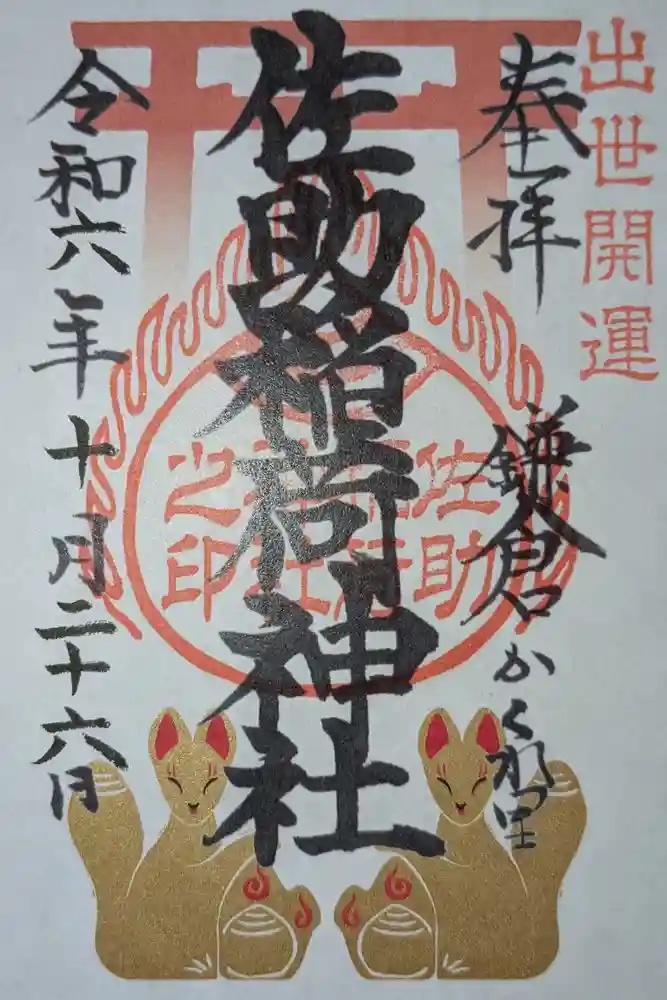 出世開運
奉拝
鎌倉かくれ里
佐助稲荷神社
佐助
稲荷
神社
之印
令和六年十月二十六日